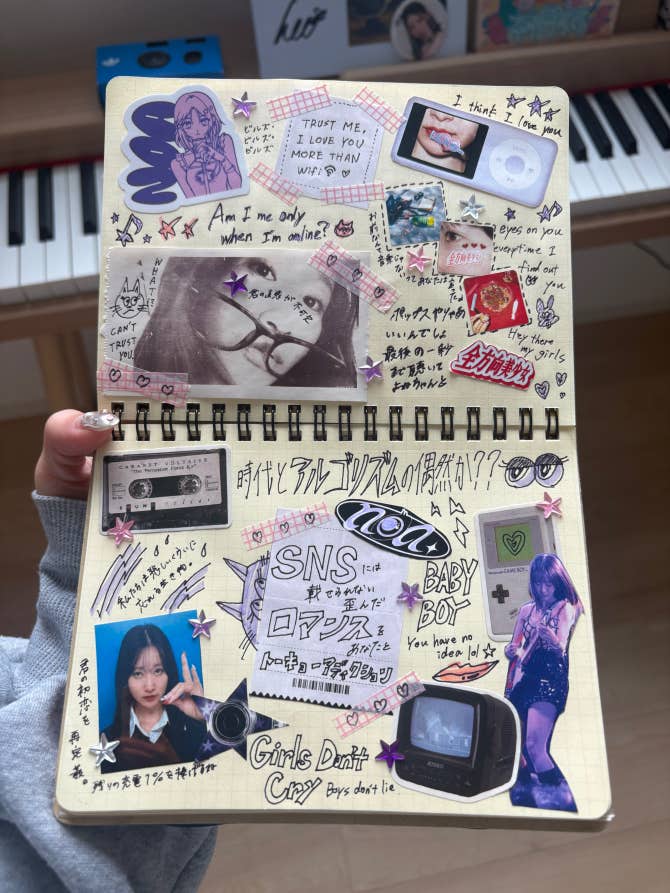 heo
NOA
ピルズ・
ピルズ・
ピルズ
TRUST ME,
I LOVE YOU
MORE THAN
Wifi
I think I love you
Am I me only
when I'm online?
eyes on you
everytime I
find out
you
Hey there
my girls
WHAT!?
CAN'T
TRUST
YOU
君の

ポップスやりゃあ
いいんでしょ
最後の一秒
まで聴いて
全方向美少女
全方向美少女
CABARET VOLTAIRE
時代とアルゴリズムの偶然か??
nōn
SNSには
載せられない
歪んだ
ロマンスを
あなたと
トーキョーアディクション
BABY
BOY
You have no
idea lol
Nintendo GAME BOY
私たちは
君の初恋を
再定義。
残りの充電7%を捧げるね
Girls Don't
Cry
Boys don't lie